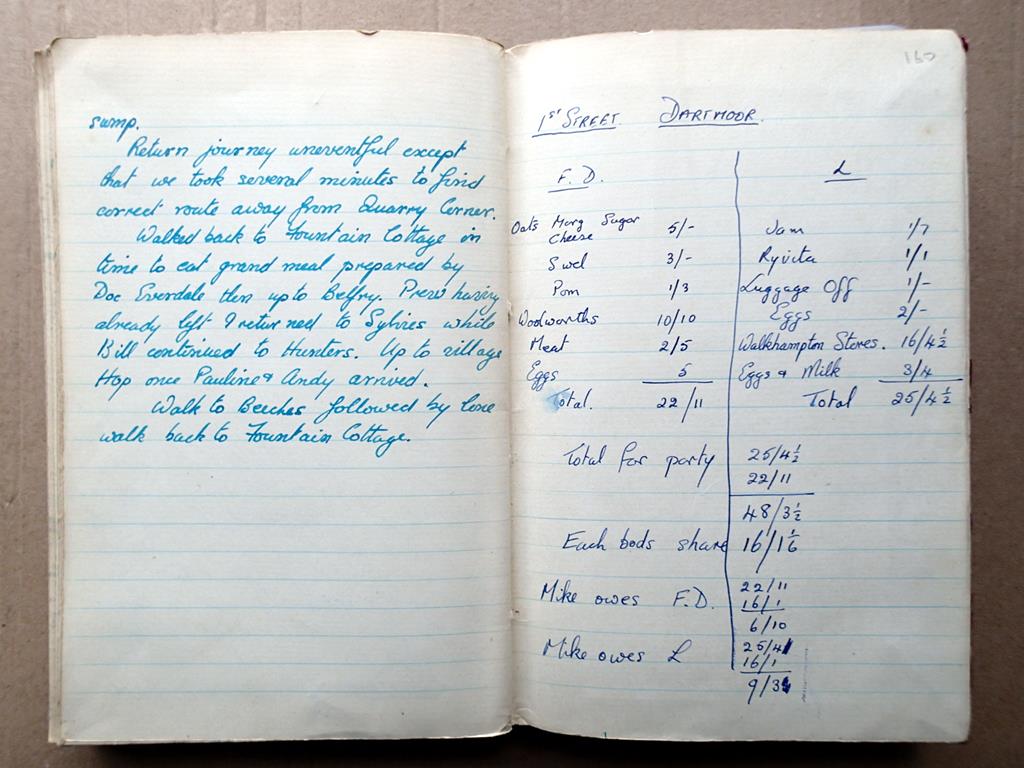 sump.
Return journey uneventful except
that we took several minutes to find
correct route away from Quarry Corner.
Walked back to Fountain Cottage in
time to eat grand meal prepared by
Doc Everdale then up to Belfry. Prew having
already left I returned to Sylvies while
Bill continued to Hunters. Up to village
Hop once Pauline & Andy arrived.
Walk to Beeches followed by lone
walk back to Fountain Cottage.
160
1st STREET. DARTMOOR.
F. D.
Oats Marg Sugar
Cheese 5/-
Swel 3/-
Pom 1/3
Woodworths 10/10
Meat 2/5
Eggs 5
Total. 22/11
L
Jam 1/7
Ryvita 1/1
Luggage Off 1/-
Eggs 2/-
Walkhampton Stores. 16/4½
Eggs & Milk 3/4
Total 25/4½
Total for party 25/4½
22/11
48/3½
Each bods share 16/1
Mike owes F.D. 22/11
16/1
6/10
Mike owes L 25/4
16/1
9/3